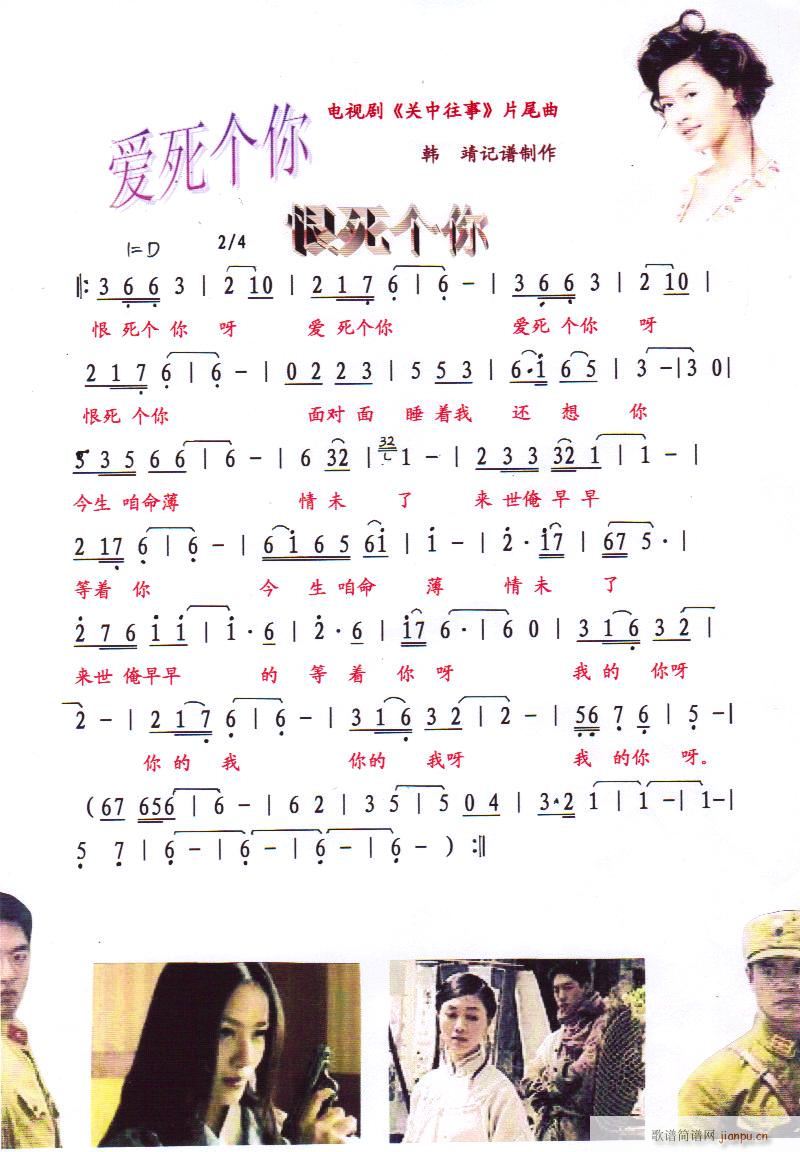 电视剧《关中往事》片尾曲
爱死个你
韩 靖记谱制作
恨死个你
1=D 2/4
‖: 3 6 6 3 | 2 10 | 2 1 7 6 | 6 - | 3 6 6 3 | 2 10 |
恨 死个 你 呀 爱 死个你 爱死 个你 呀
2 1 7 6 | 6 - | 0 2 2 3 | 5 5 3 | 6·i 6 5 | 3 - | 3 0 |
恨死 个你 面对 面 睡 着我 还 想 你
5 3 5 6 6 | 6 - | 6 32 | 32 1 - | 2 3 3 32 1 | 1 - |
今生 咱命薄 情 未 了 来 世俺 早 早
2 17 6 | 6 - | 6 i 6 5 6i | i - | 2· i7 | 67 5· |
等着 你 今 生 咱命 薄 情 未 了
2 7 6 i i | i· 6 | 2· 6 | i7 6· | 6 0 | 3 1 6 3 2 |
来世 俺早早 的 等 着 你 呀 我 的 你呀
2 - | 2 1 7 6 | 6 - | 3 1 6 3 2 | 2 - | 56 7 6 | 5 - |
你 的 我 你的 我呀 我 的你 呀。
( 67 656 | 6 - | 6 2 | 3 5 | 5 0 4 | 3·2 1 | 1 - | 1 - |
5 7 | 6 - | 6 - | 6 - | 6 - ) :‖
歌谱简谱网 jianpu.cn